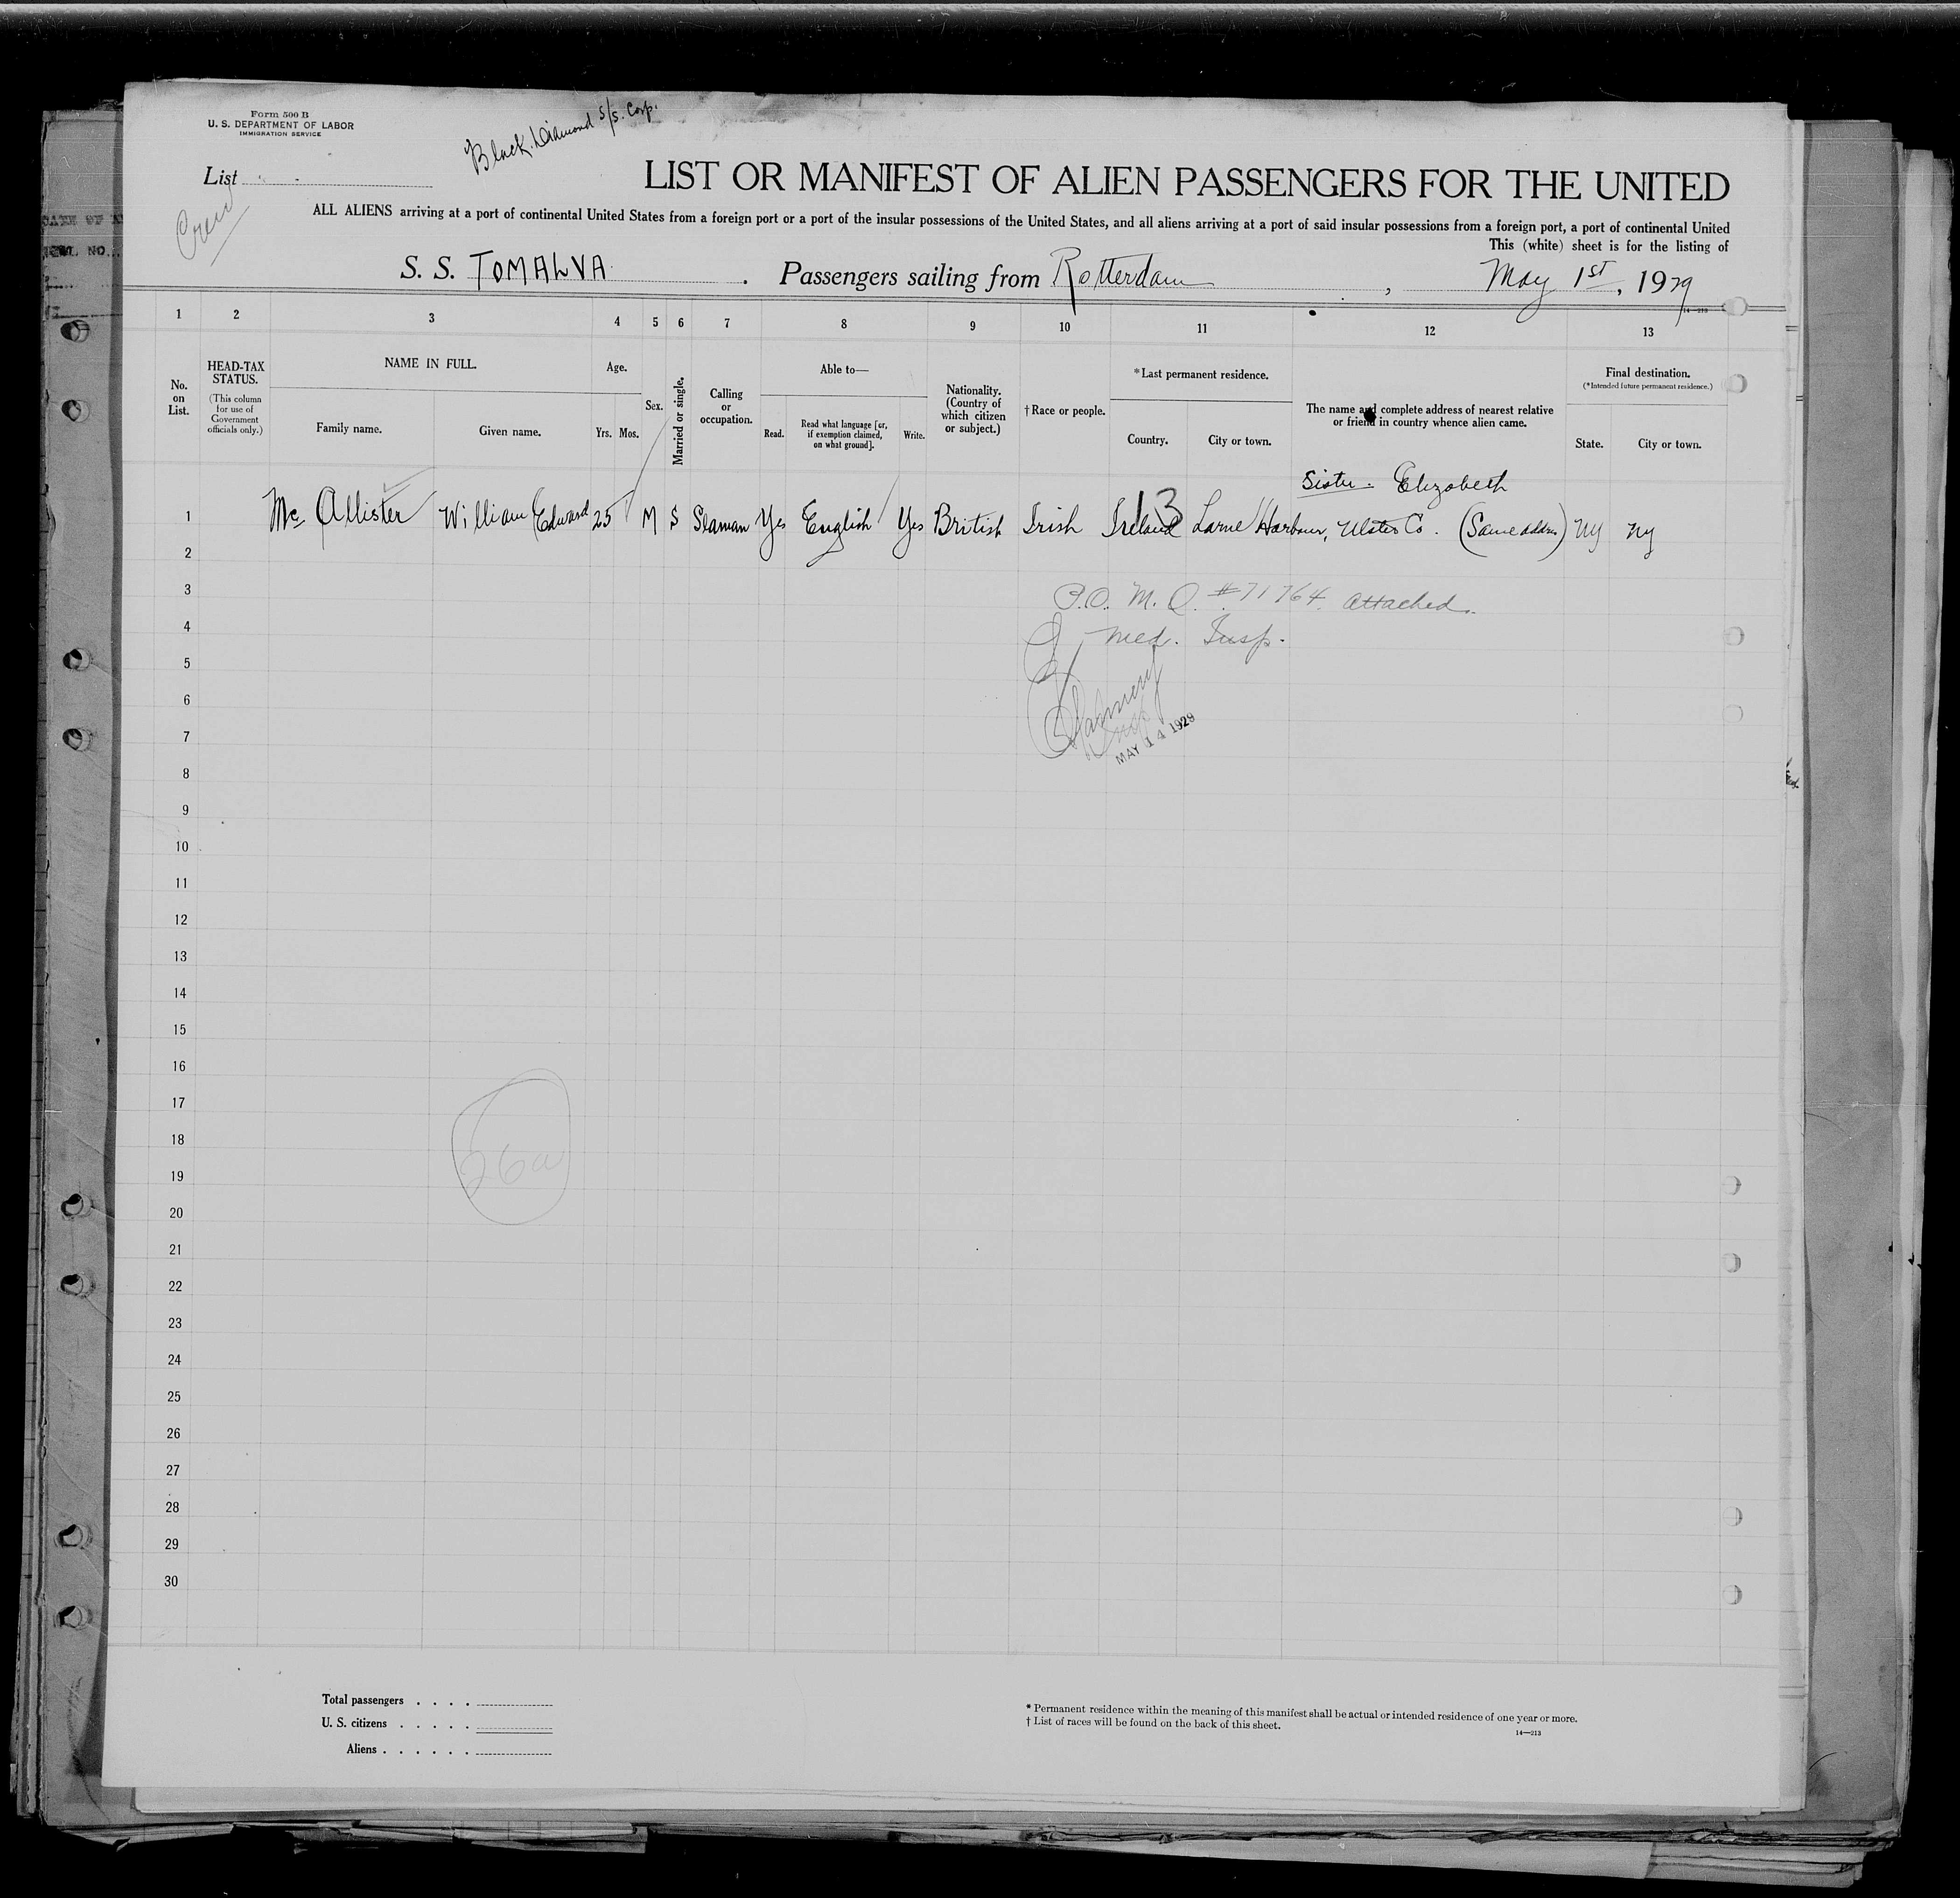 Form 500 B
U. S. DEPARTMENT OF LABOR
IMMIGRATION SERVICE
Black Diamond S/S. Corp.
List
Crew
LIST OR MANIFEST OF ALIEN PASSENGERS FOR THE UNITED
ALL ALIENS arriving at a port of continental United States from a foreign port or a port of the insular possessions of the United States, and all aliens arriving at a port of said insular possessions from a foreign port, a port of continental United
This (white) sheet is for the listing of
S. S. TOMALVA. Passengers sailing from Rotterdam, May 1st, 1929
14—213
1 2 3 4 5 6 7 8 9 10 11 12 13
No. on List.
HEAD-TAX STATUS.
(This column for use of Government officials only.)
NAME IN FULL.
Family name. Given name.
Age.
Yrs. Mos.
Sex.
Married or single.
Calling or occupation.
Able to—
Read. Read what language [or, if exemption claimed, on what ground]. Write.
Nationality. (Country of which citizen or subject.)
†Race or people.
*Last permanent residence.
Country. City or town.
The name and complete address of nearest relative or friend in country whence alien came.
Final destination.
(*Intended future permanent residence.)
State. City or town.
Sister. Elizabeth
13
1 McAllister William Edward 25 M S Seaman Yes English Yes British Irish Ireland Larne Harbour, Ulster Co. (Same addrs) NY NY
2
3
P.O. M. O. #71764 attached.
4
Med. Insp.
5
6
7
MAY 14 1929
8
9
10
11
12
13
14
15
16
17
18
26a
19
20
21
22
23
24
25
26
27
28
29
30
Total passengers . . . .
U. S. citizens . . . . .
Aliens . . . . . .
* Permanent residence within the meaning of this manifest shall be actual or intended residence of one year or more.
† List of races will be found on the back of this sheet.
14—213